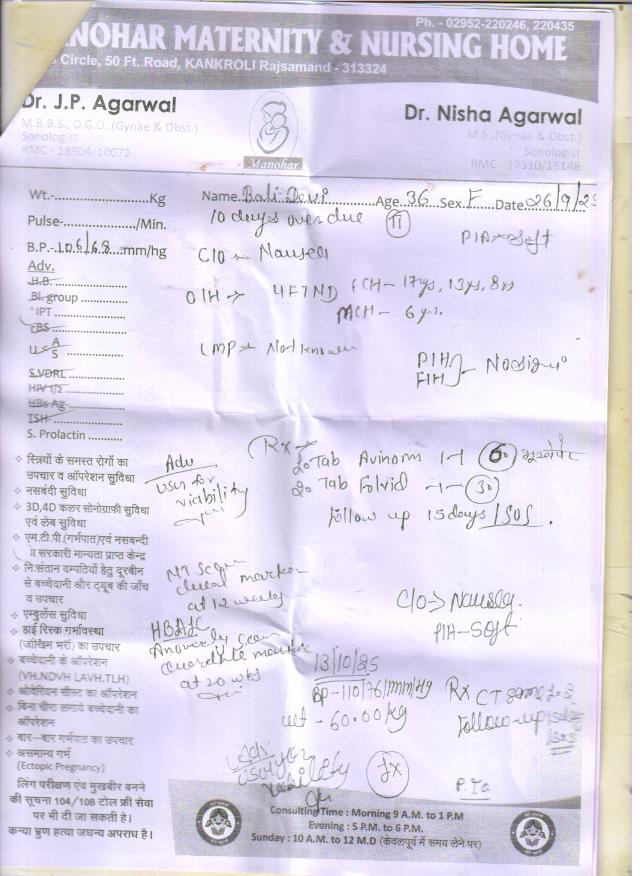 Ph. - 02952-220246, 220435
MANOHAR MATERNITY & NURSING HOME
Circle, 50 Ft. Road, KANKROLI Rajsamand - 313324
Dr. J.P. Agarwal
M.B.B.S., D.G.O.,(Gynae & Obst.)
Sonologist
RMC - 18904/10072
Manohar
Dr. Nisha Agarwal
M.S.,(Gynae & Obst.)
Sonologist
RMC - 17310/15148
Wt.-....................Kg
Name. Bali Devi Age. 36 Sex. F Date. 26/9/25
Pulse-.................../Min.
10 days over due
B.P.-106/68....mm/hg
P/A → Soft
C/O → Nausea
Adv.
H.B. ................
Bl. group ............
UPT ................
RBS ................
U < A/S ................
S.VDRL ................
HIV 1/2 ................
HBs Ag ................
TSH ................
S. Prolactin ..........
O/H → 4FTND FCH - 17ys, 13ys, 8ys
MCH - 6 yrs.
LMP → Not known
PIH
FIH
Rx
Tab Avinorm 1-1 60
Tab Folvid -1- 30
Follow up 15 days / SOS.
Adv
USG for
viability
NT Scan
dual marker
at 12 weeks
HBA1C
Anomaly scan
Quadruple marker
at 20 wks
C/O → Nausea
P/A - Soft
13/10/25
BP - 110/76 mm/Hg
wt - 60.00kg
Rx CT same
Follow-up 15 days
SOS
USG for
viability
स्त्रियों के समस्त रोगों का
उपचार व ऑपरेशन सुविधा
नसबंदी सुविधा
3D,4D कलर सोनोग्राफी सुविधा
एवं लेब सुविधा
एम.टी.पी.(गर्भपात)एवं नसबन्दी
सरकारी मान्यता प्राप्त केन्द्र
नि:संतान दम्पतियों हेतु दूरबीन
से बच्चेदानी और ट्यूब की जाँच
व उपचार
एम्बुलेंस सुविधा
हाई रिस्क गर्भावस्था
(जोखिम भरी) का उपचार
बच्चेदानी के ऑपरेशन
(VH.NDVH LAVH.TLH)
ओवेरियन सीस्ट का ऑपरेशन
बिना चीरा लगाये बच्चेदानी का
ऑपरेशन
बार-बार गर्भपात का उपचार
असमान्य गर्भ
(Ectopic Pregnancy)
लिंग परीक्षण एंव मुखबीर बनने
की सूचना 104/108 टोल फ्री सेवा
पर भी दी जा सकती है।
कन्या भ्रुण हत्या जघन्य अपराध है।
Consulting Time : Morning 9 A.M. to 1 P.M
Evening : 5 P.M. to 6 P.M.
Sunday : 10 A.M. to 12 M.D (केवलपूर्व में समय लेने पर)